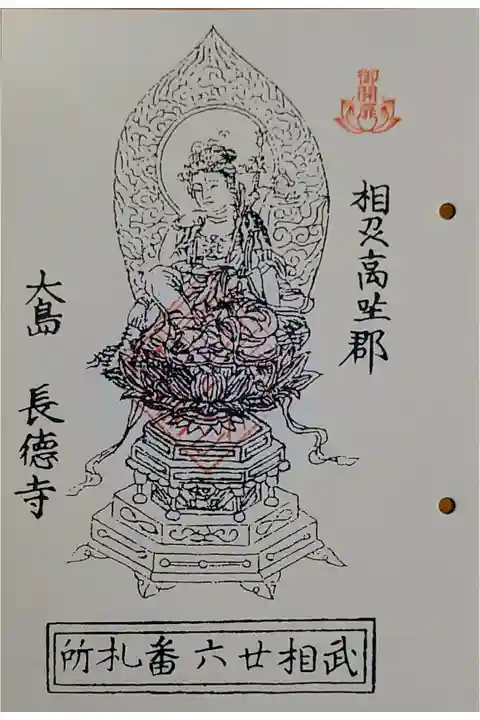 御開扉
相刕高坐郡
大島 長德寺
武相廿六番札所